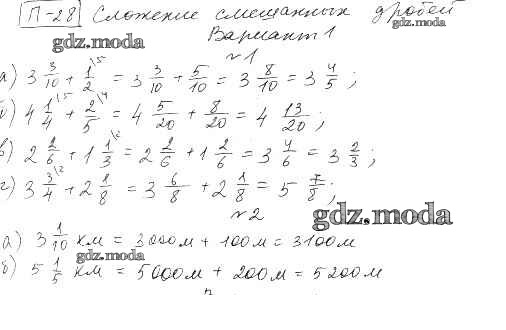 П-28 Сложение смешанных дробей
gdz.moda
gdz.moda
Вариант 1
№1
а) 3 3/10 + 1/2 \5 = 3 3/10 + 5/10 = 3 8/10 = 3 4/5 ;
б) 4 1/4 \5 + 2/5 \4 = 4 5/20 + 8/20 = 4 13/20 ;
в) 2 2/6 + 1 1/3 \2 = 2 2/6 + 1 2/6 = 3 4/6 = 3 2/3 ;
г) 3 3/4 \2 + 2 1/8 = 3 6/8 + 2 1/8 = 5 7/8 ;
№2
gdz.moda
а) 3 1/10 км = 3000м + 100м = 3100м
gdz.moda
б) 5 1/5 км = 5000м + 200м = 5200м